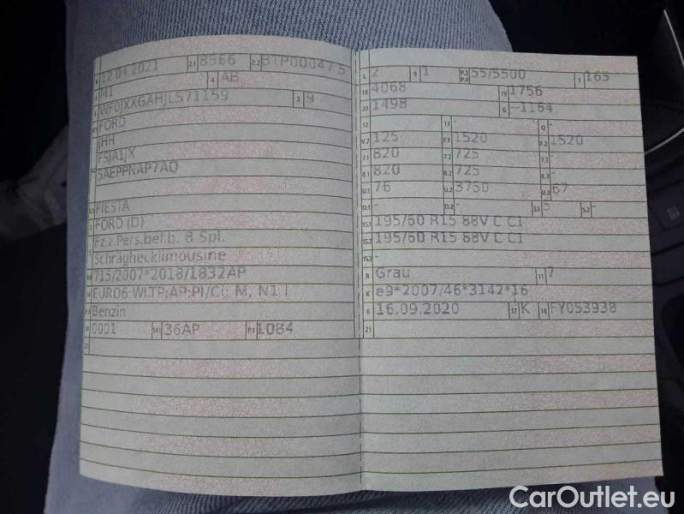 12.04.2021 2.1 8566 2.2 BTP000475
M1 4 AB
WF0JXXGAHJLS71159 3 9
FORD
JHH
FSJA1JX
5AEPPNAP7AQ
FIESTA
FORD (D)
Fz.z.Pers.bef.b. 8 Spl.
Schräghecklimousine
715/2007*2018/1832AP
EURO6 WLTP;AP;PI/CI; M, N1 I
Benzin
0001 14.1 36AP P.1 1084
2 9 1 55/5500 T 165
4068 1756
1498 -1164
12 - 13 - Q -
125 1520 1520
820 725 -
820 725 -
76 3750 67
- - 5 -
195/60 R15 88V C C1
195/60 R15 88V C C1
-
Grau 11 7
e9*2007/46*3142*16
16.09.2020 17 K 16 FY053938
21
CarOutlet.eu